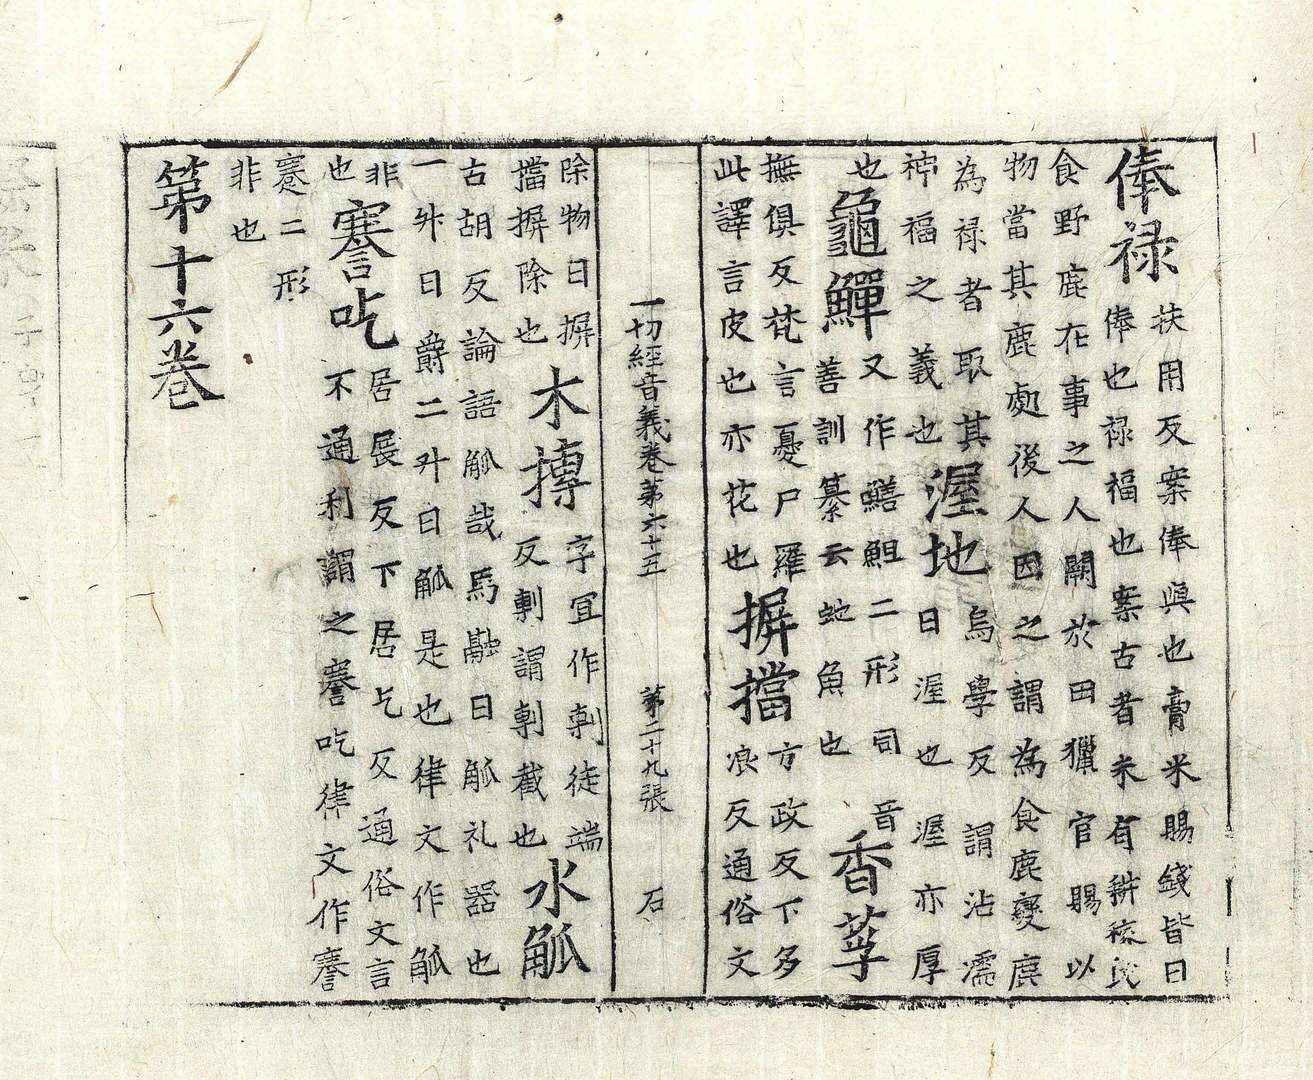 俸禄
扶用反案俸與也膏米賜錢皆曰
俸也禄福也案古者未有耕稼民
食野鹿在事之人闕於田獵官賜以
物當其鹿處後人因之謂為食鹿變鹿
為禄者取其
神福之義也
渥地
烏學反謂沾濡
曰渥也渥亦厚
也
龜鱓
又作鱔䱇二形同音
善訓纂云虵魚也
香莩
撫俱反梵言憂尸羅
此譯言皮也亦花也
摒擋
方政反下多
浪反通俗文
一切經音義卷第六十五 第二十九張 石
除物曰摒
擋摒除也
木摶
字冝作剸徒端
反剸謂剸截也
水觚
古胡反論語觚哉馬融曰觚礼器也
一升曰爵二升曰觚是也律文作觚
非
也
謇吃
居展反下居乞反通俗文言
不通利謂之謇吃律文作謇
蹇二形
非也
第十六卷